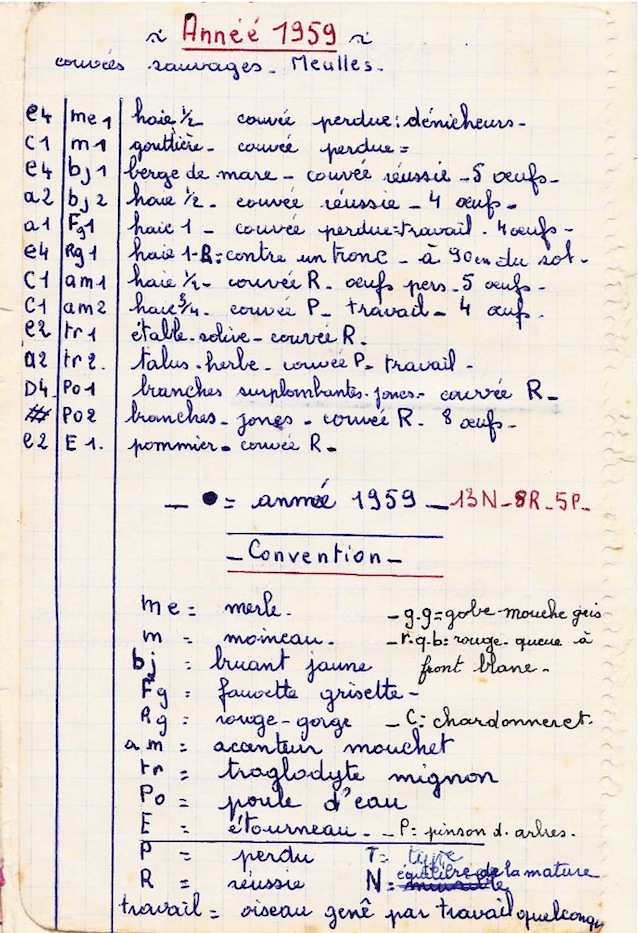 Année 1959
couvées sauvages - Meulles -
e4 | me1 | haie 1/2 couvée perdue : dénicheurs -
C1 | m1 | gouttière - couvée perdue =
e4 | bj1 | berge de mare - couvée réussie - 5 œufs -
a2 | bj2 | haie 1/2 - couvée réussie - 4 œufs -
a1 | Fg1 | haie 1 - couvée perdue = travail - 4 œufs -
e4 | Rg1 | haie 1 - R = contre un tronc - à 90 cm du sol -
C1 | am1 | haie 1/2 - couvée R - œufs pers - 5 œufs -
C1 | am2 | haie 3/4 - couvée P - travail - 4 œufs -
e2 | tr1 | étable - solive - couvée R -
a2 | tr2. | talus - herbe - couvée P - travail -
D4. | Po1 | branches surplombantes - joncs - couvée R -
PO2 | branches - joncs - couvée R - 8 œufs -
e2 | E1. | pommier - couvée R -
- ● = année 1959 - 13N - 8R - 5P -
- Convention -
me = merle - - g.g = gobe-mouche gris
m = moineau - - r.q.b : rouge-queue à
bj : bruant jaune front blanc -
Fg = fauvette grisette -
Rg = rouge-gorge - C : chardonneret.
am = accenteur mouchet
tr = traglodyte mignon
Po = poule d'eau
E = étourneau - - P = pinson d. arbres.
P = perdu T = type
R = réussie N = équilibre de la nature
travail = oiseau gené par travail quelconqu